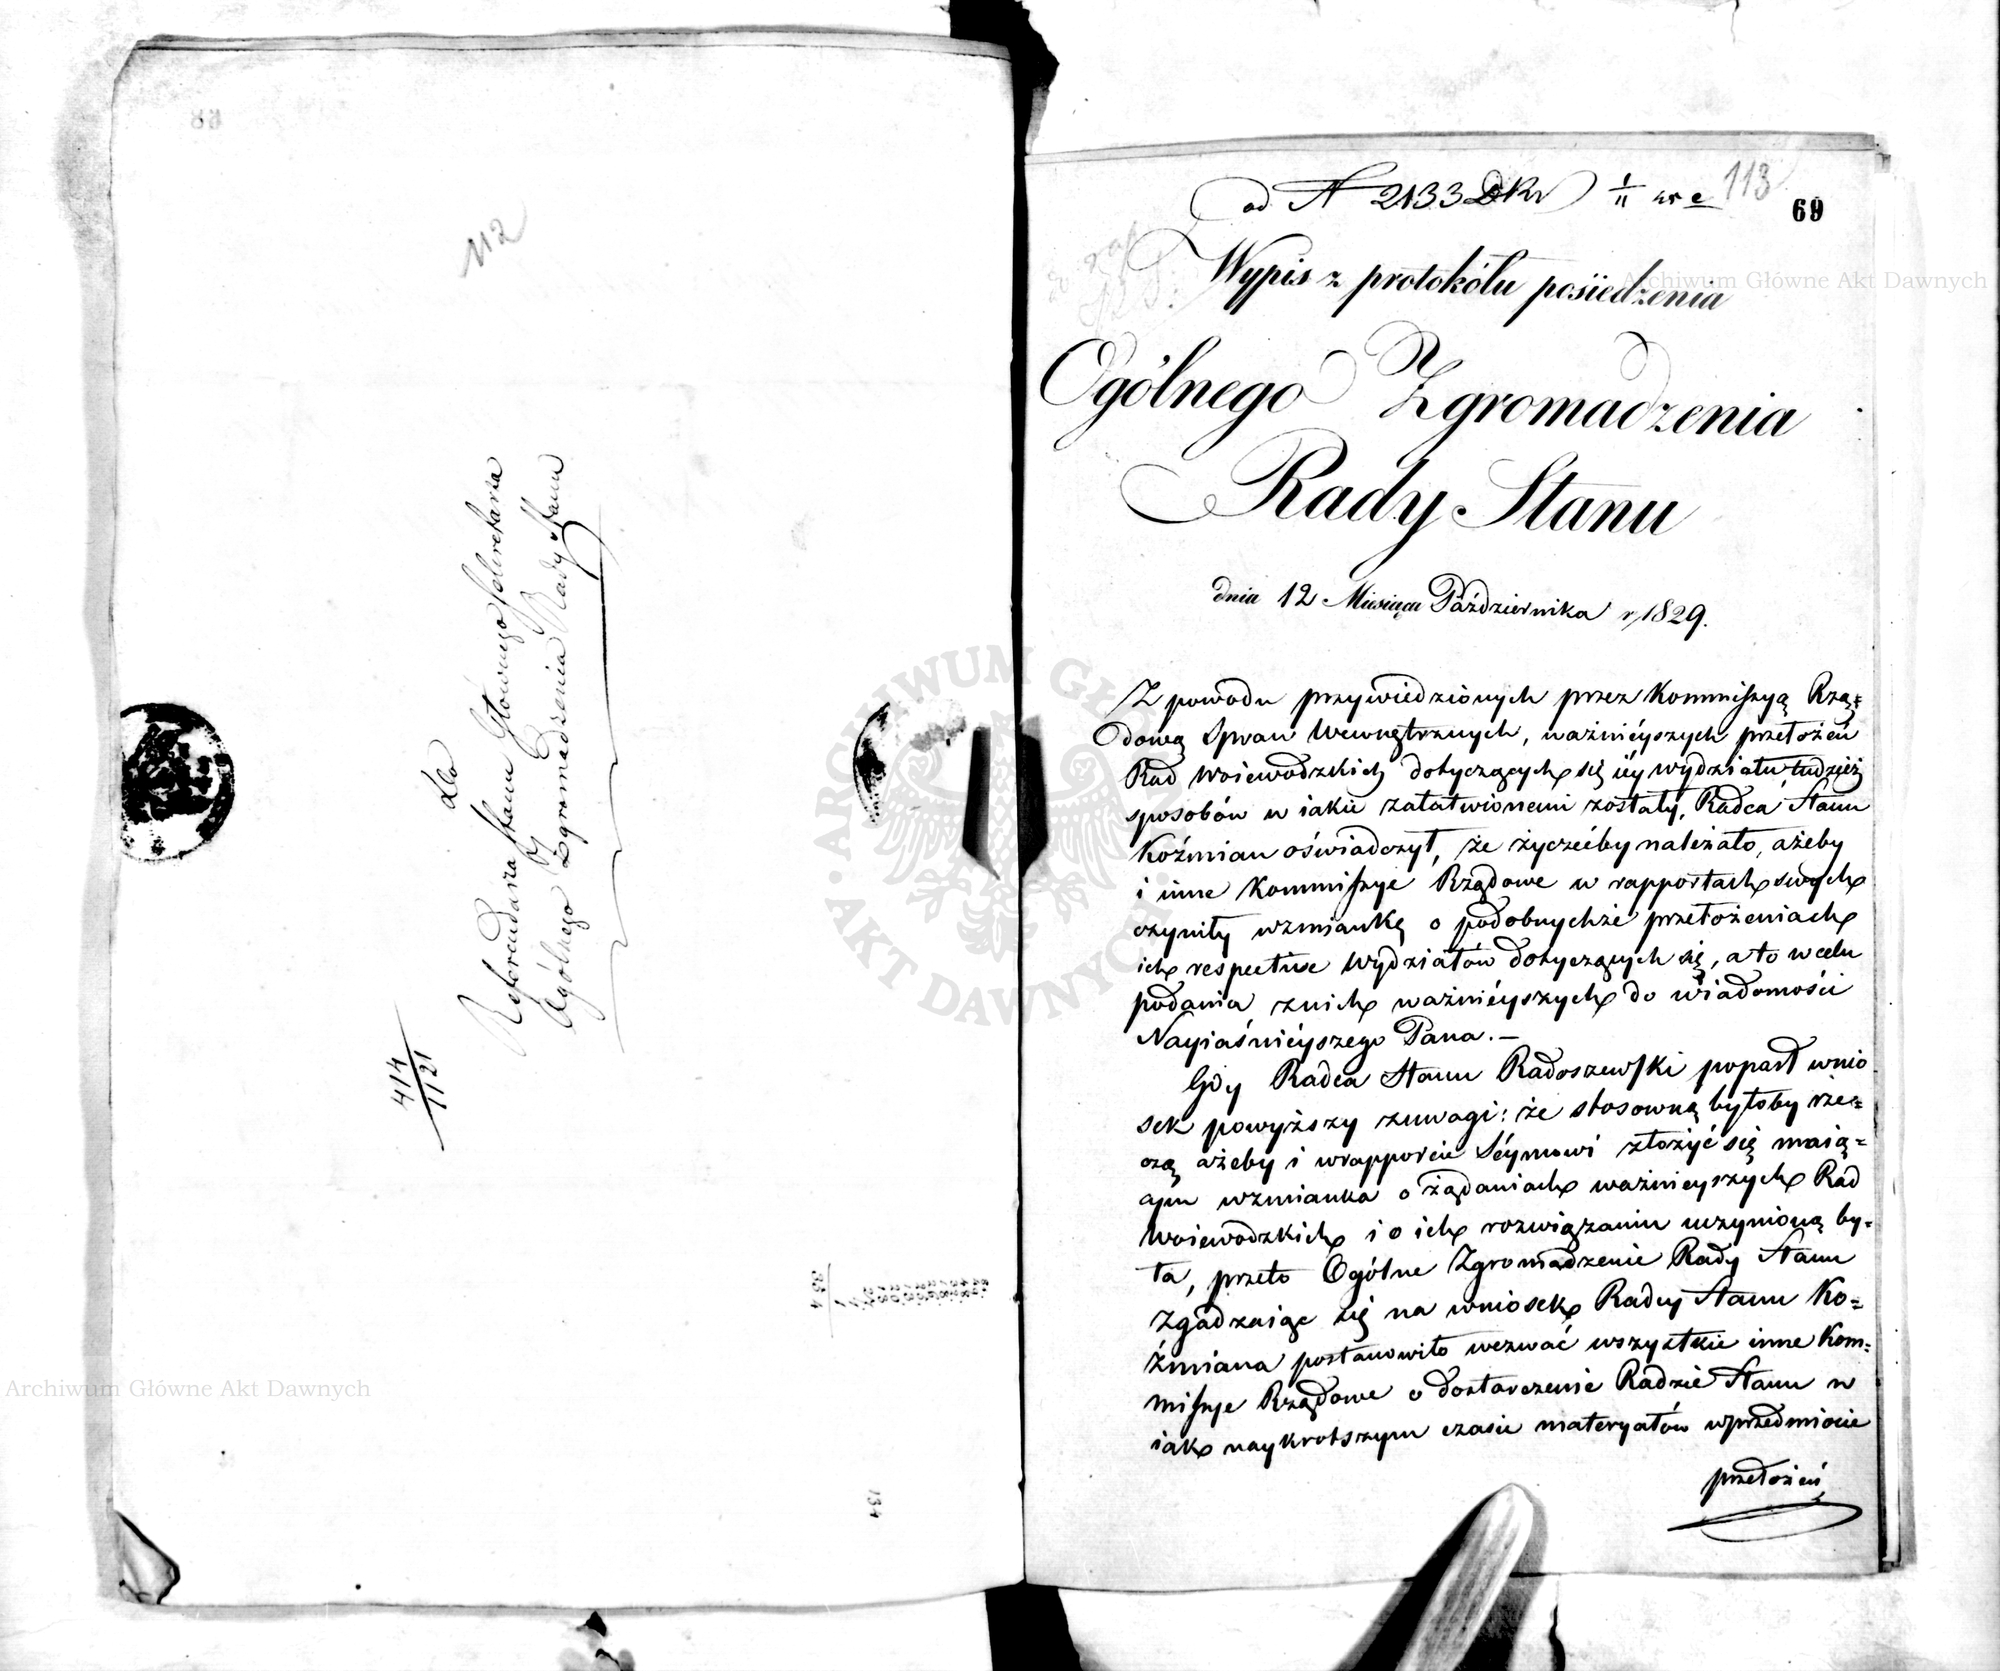 112
Dla
Referendarza Stanu Głównego Sekretarza
Ogólnego Zgromadzenia Rady Stanu
414
1121
134
ad N 2133 DKr
113
69
Wypis z protokółu posiedzenia
Ogólnego Zgromadzenia
Rady Stanu
dnia 12 Miesiąca Października r. 1829.
Z powodu przywiedzionych przez Kommissyą Rzą=
dową Spraw Wewnętrznych, ważniéyszych przełożeń
Rad Woiewodzkich dotyczących się iéy wydziału tudzież
sposobów w iakie załatwionemi zostały, Radca Stanu
Koźmian oświadczył, że życzećby należało, ażeby
i inne Kommissye Rządowe w rapportach swych
czyniły wzmiankę o podobnychże przełożeniach
ich respective Wydziałów dotyczących się, a to w celu
podania z nich ważniéyszych do wiadomości
Nayiaśniéyszego Pana. —
Gdy Radca Stanu Radoszewski poparł wnio
sek powyższy z uwagi: że stosowną byłoby rze=
czą ażeby i w rapporcie Séymowi złożyć się maią=
cym wzmianka o żądaniach ważnieyszych Rad
Woiewodzkich i o ich rozwiązaniu uczynioną by=
ła, przeto Ogólne Zgromadzenie Rady Stanu
Zgadzaiąc się na wniosek Radcy Stanu Ko=
źmiana postanowiło wezwać wszystkie inne Kom=
missye Rządowe o dostarczenie Radzie Stanu w
iak naykrótszym czasie materyałów w przedmiocie
przełożeń
Archiwum Główne Akt Dawnych
Archiwum Główne Akt Dawnych
ARCHIWUM GŁÓWNE AKT DAWNYCH